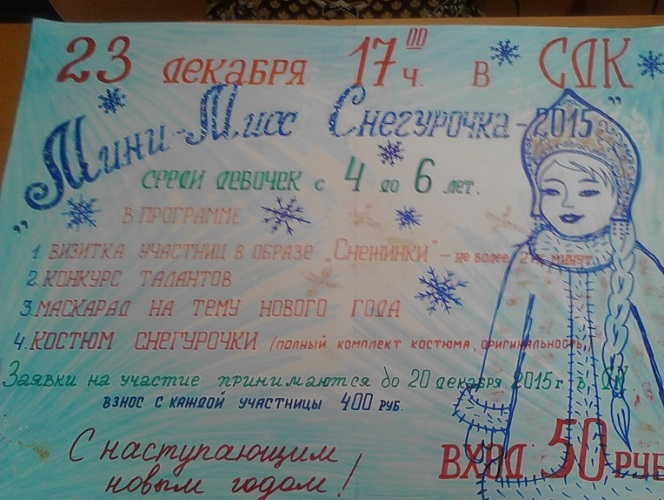 23 декабря 17 00 ч. в СДК
„Мини-Мисс Снегурочка-2015"
среди девочек с 4 до 6 лет.
В ПРОГРАММЕ
1. ВИЗИТКА УЧАСТНИЦ В ОБРАЗЕ „Снежинки" - не более 2х минут
2. КОНКУРС ТАЛАНТОВ
3. МАСКАРАД НА ТЕМУ НОВОГО ГОДА
4. КОСТЮМ СНЕГУРОЧКИ (полный комплект костюма, оригинальность)
Заявки на участие принимаются до 20 декабря 2015г в
ВЗНОС С КАЖДОЙ УЧАСТНИЦЫ 400 РУБ.
С наступающим
новым годом!
ВХОД 50 РУБ